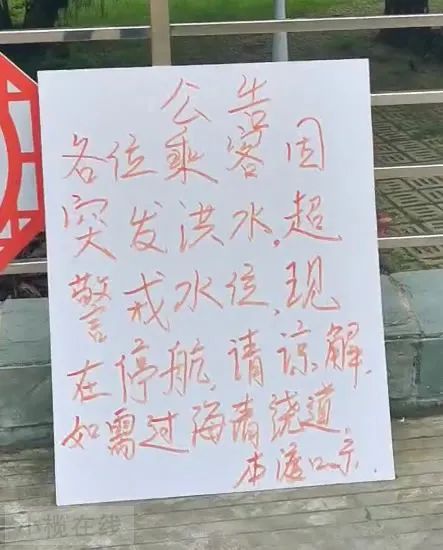 公告
各位乘客因
突发洪水,超
警戒水位,现
在停航,请谅解.
如需过海请绕道.
本渡口示.
小榄在线